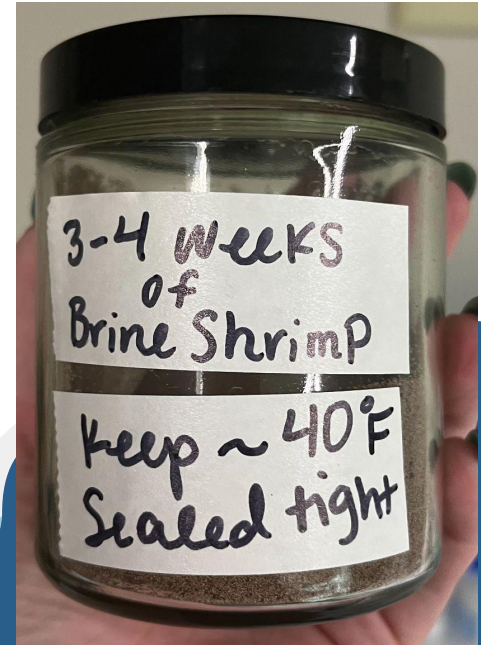 3-4 Weeks
of
Brine Shrimp
Keep ~ 40°F
Sealed tight